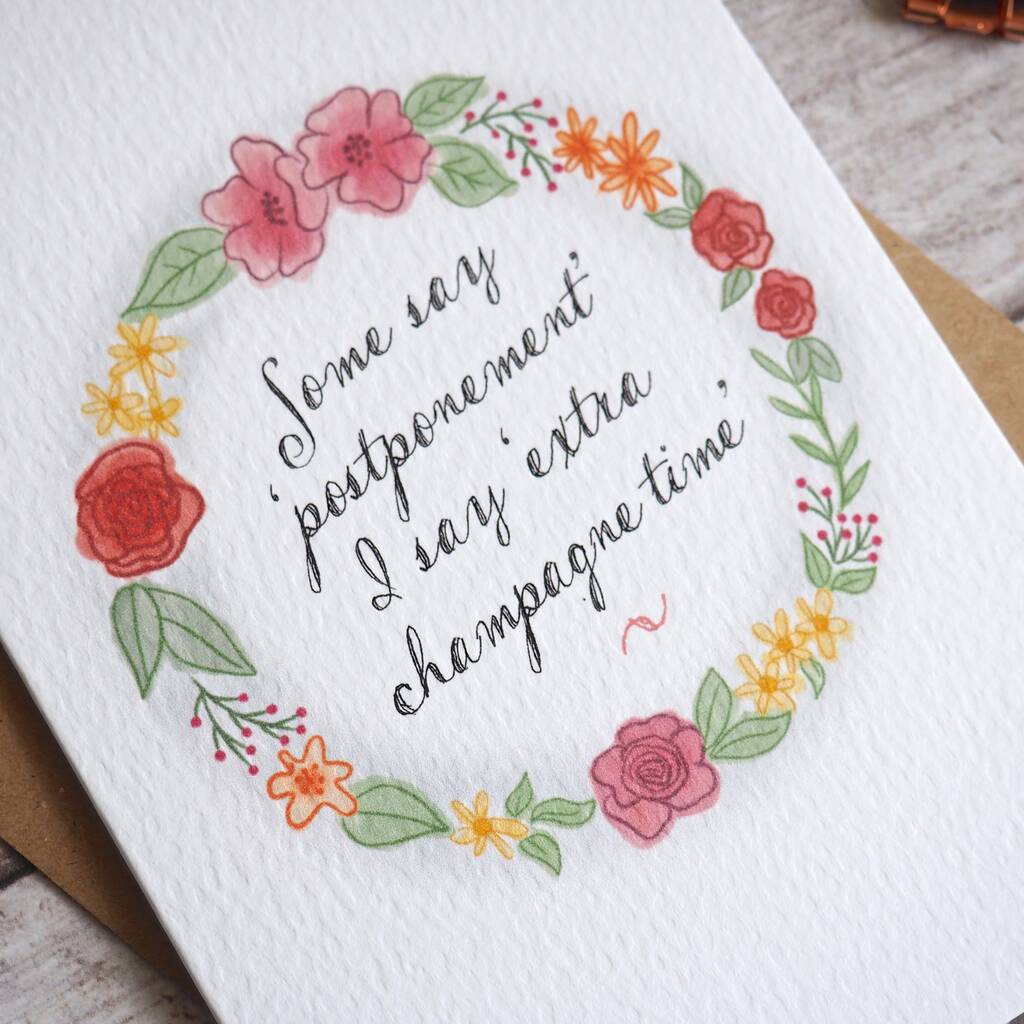 Some say
'postponement'
I say 'extra
champagne time'